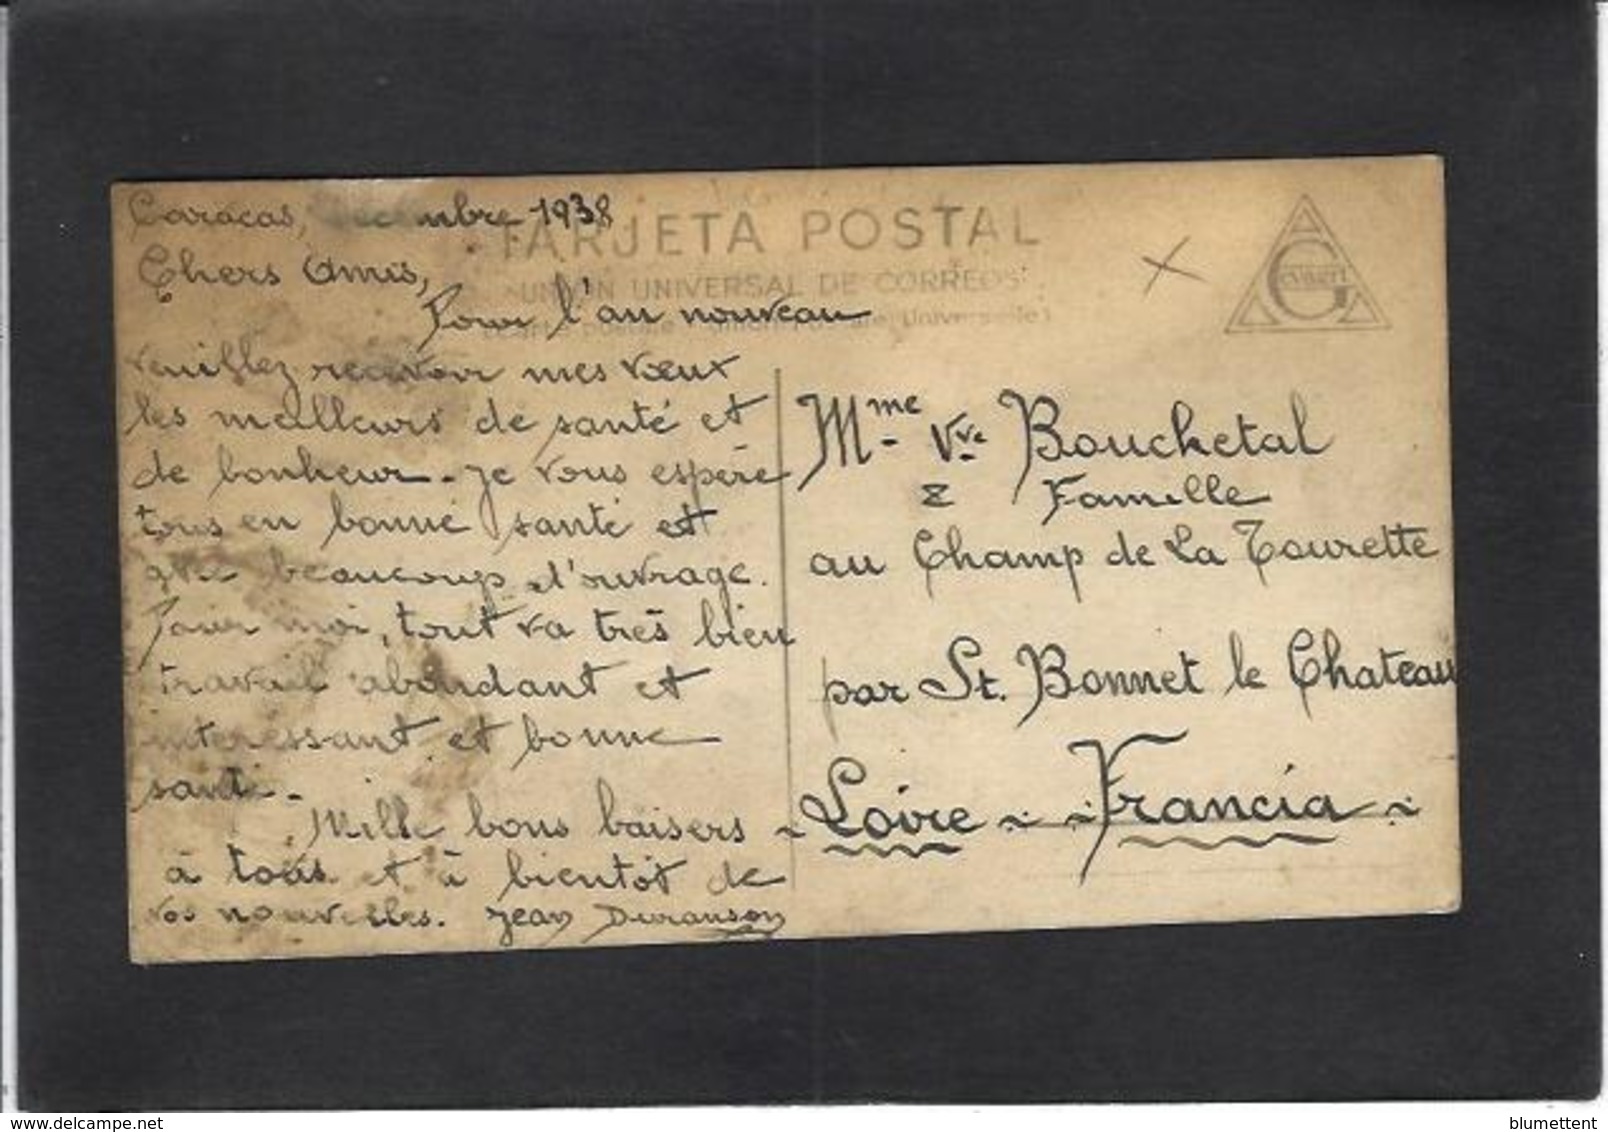 Caracas, décembre 1938
TARJETA POSTAL
Chers Amis,
UNION UNIVERSAL DE CORREOS
Pour l'an nouveau
Universelle)
GEVAERT
veuillez recevoir mes vœux
les meilleurs de santé et
de bonheur - je vous espère
tous en bonne santé et
que beaucoup d'ouvrage.
Pour moi, tout va très bien
travail abondant et
interessant et bonne
santé -
Mille bons baisers
à tous et à bientôt de
vos nouvelles. Jean Duranson
Mme Vve Bouchetal
& Famille
au Champ de La Tourette
par St. Bonnet le Chateau
Loire - Francia
blumettent